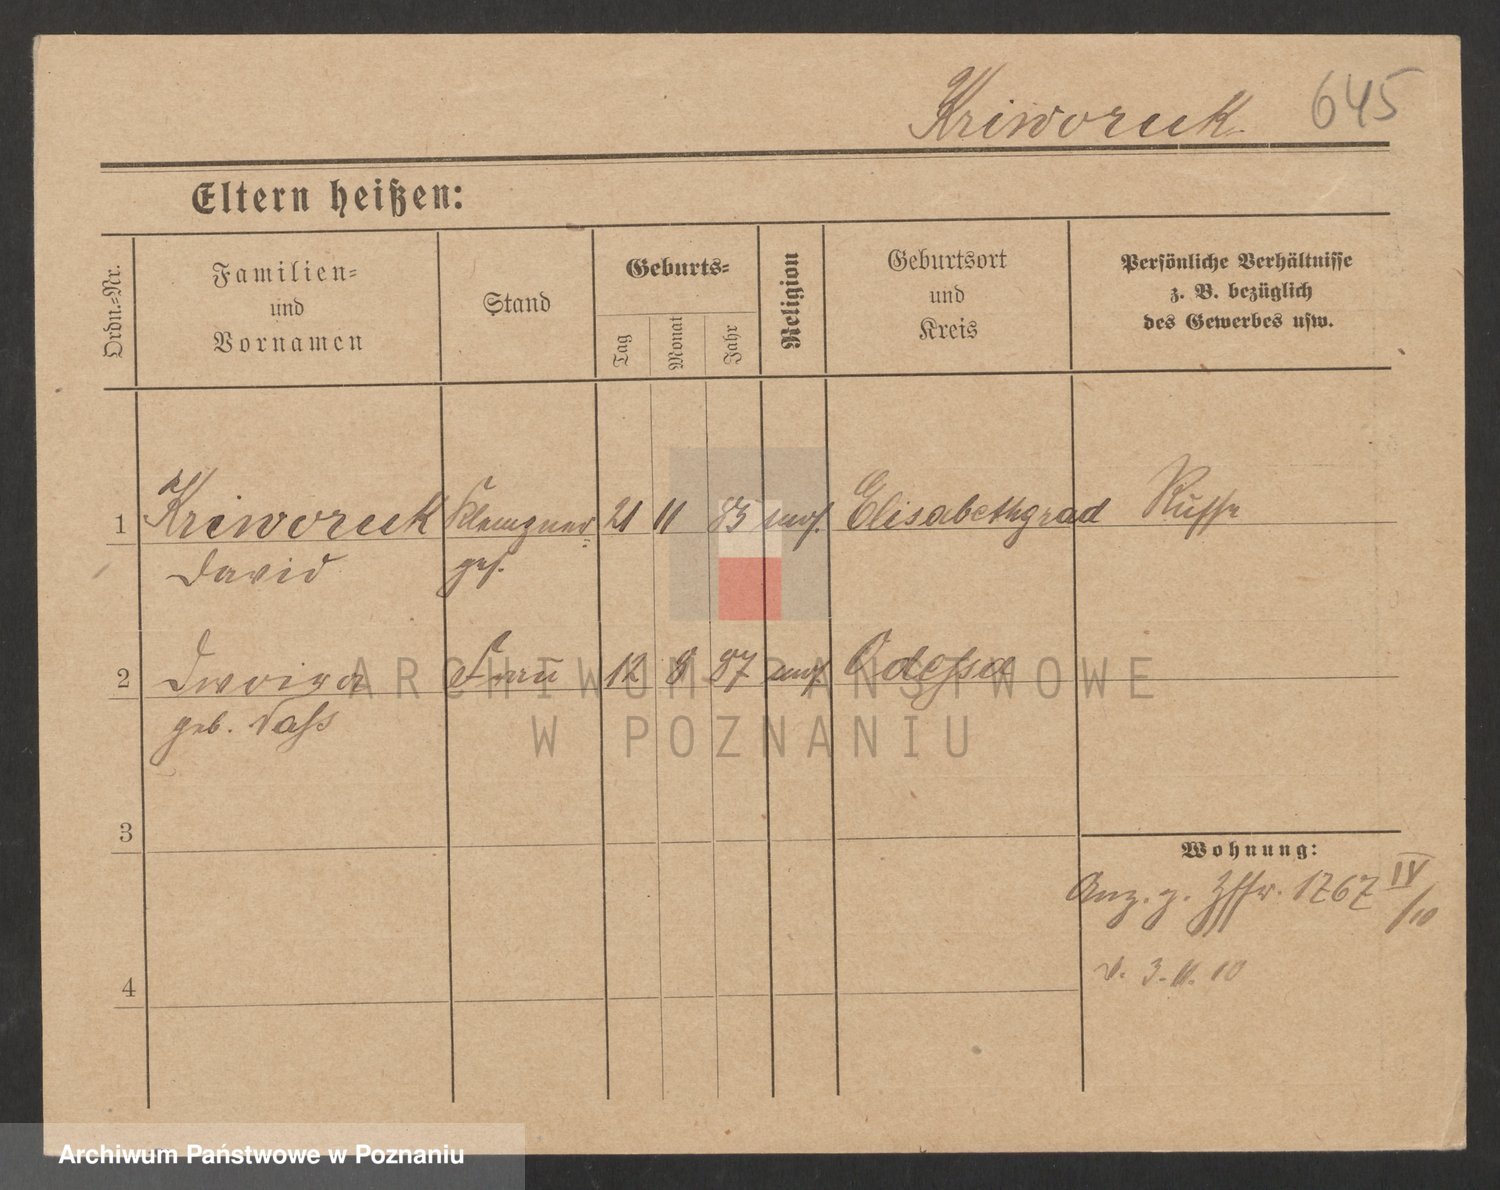 Kriworuk 645
Eltern heißen:
Ordn.-Nr.
Familien-
und
Vornamen
Stand
Geburts-
Tag
Monat
Jahr
Religion
Geburtsort
und
Kreis
Persönliche Verhältnisse
z. B. bezüglich
des Gewerbes usw.
1 Kriworuk Klempner 21 11 83 mos. Elisabethgrad Russe
David ges.
2 Frau 12 8 87 mos. Odessa
geb. Dass
3
4
Wohnung:
Anz. z. 1767 IV/10
v. 3.11.10
ARCHIWUM PAŃSTWOWE
W POZNANIU
Archiwum Państwowe w Poznaniu